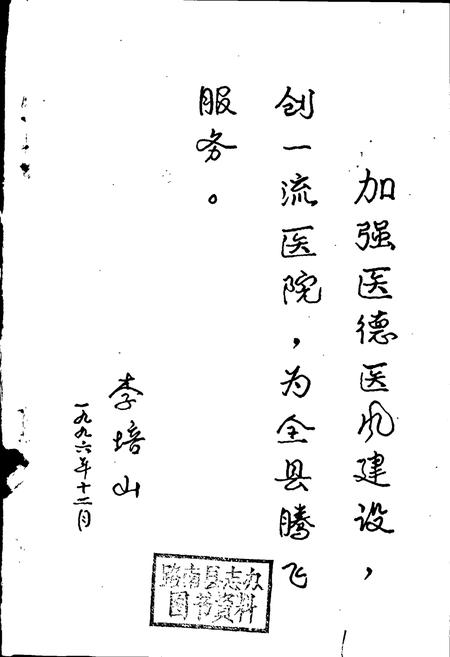 加强医德医风建设，
创一流医院，为全县腾飞
服务。
李培山
一九九六年十二月
路南县志办
图书资料